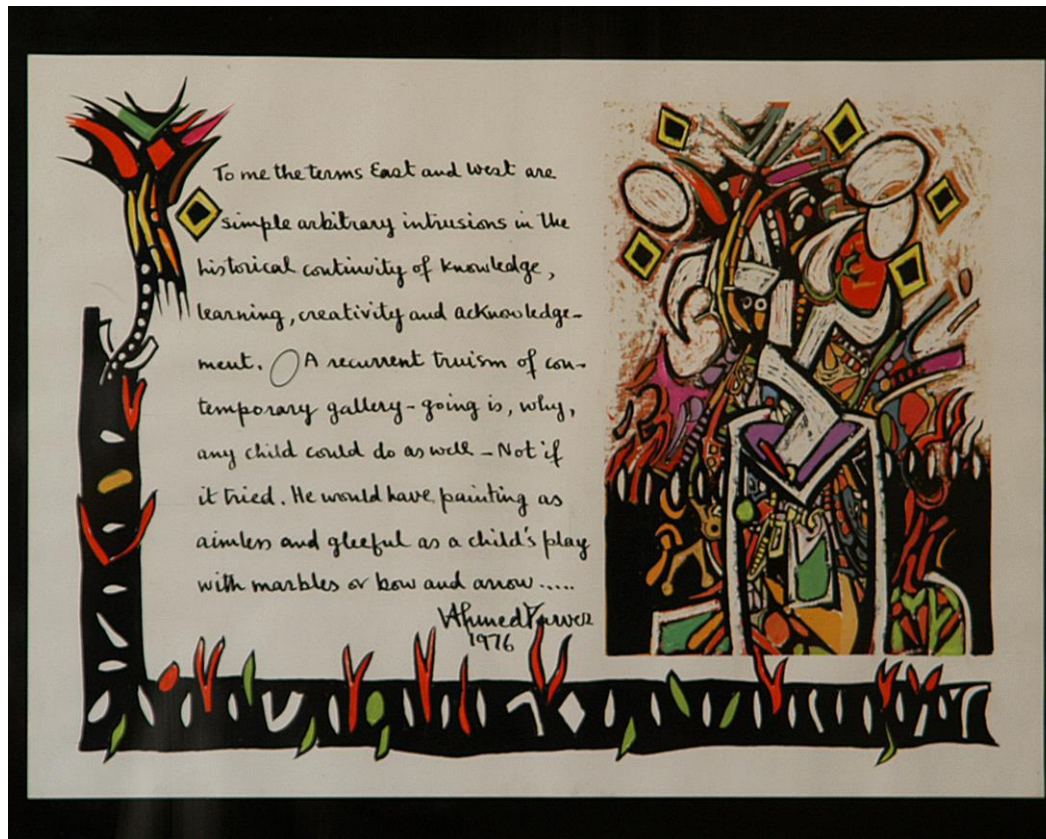 To me the terms East and West are
simple arbitrary intrusions in the
historical continuity of knowledge,
learning, creativity and acknowledge-
ment. A recurrent truism of con-
temporary gallery-going is, why,
any child could do as well - Not if
it tried. He would have painting as
aimless and gleeful as a child's play
with marbles or bow and arrow.....
Ahmed Parvez
1976